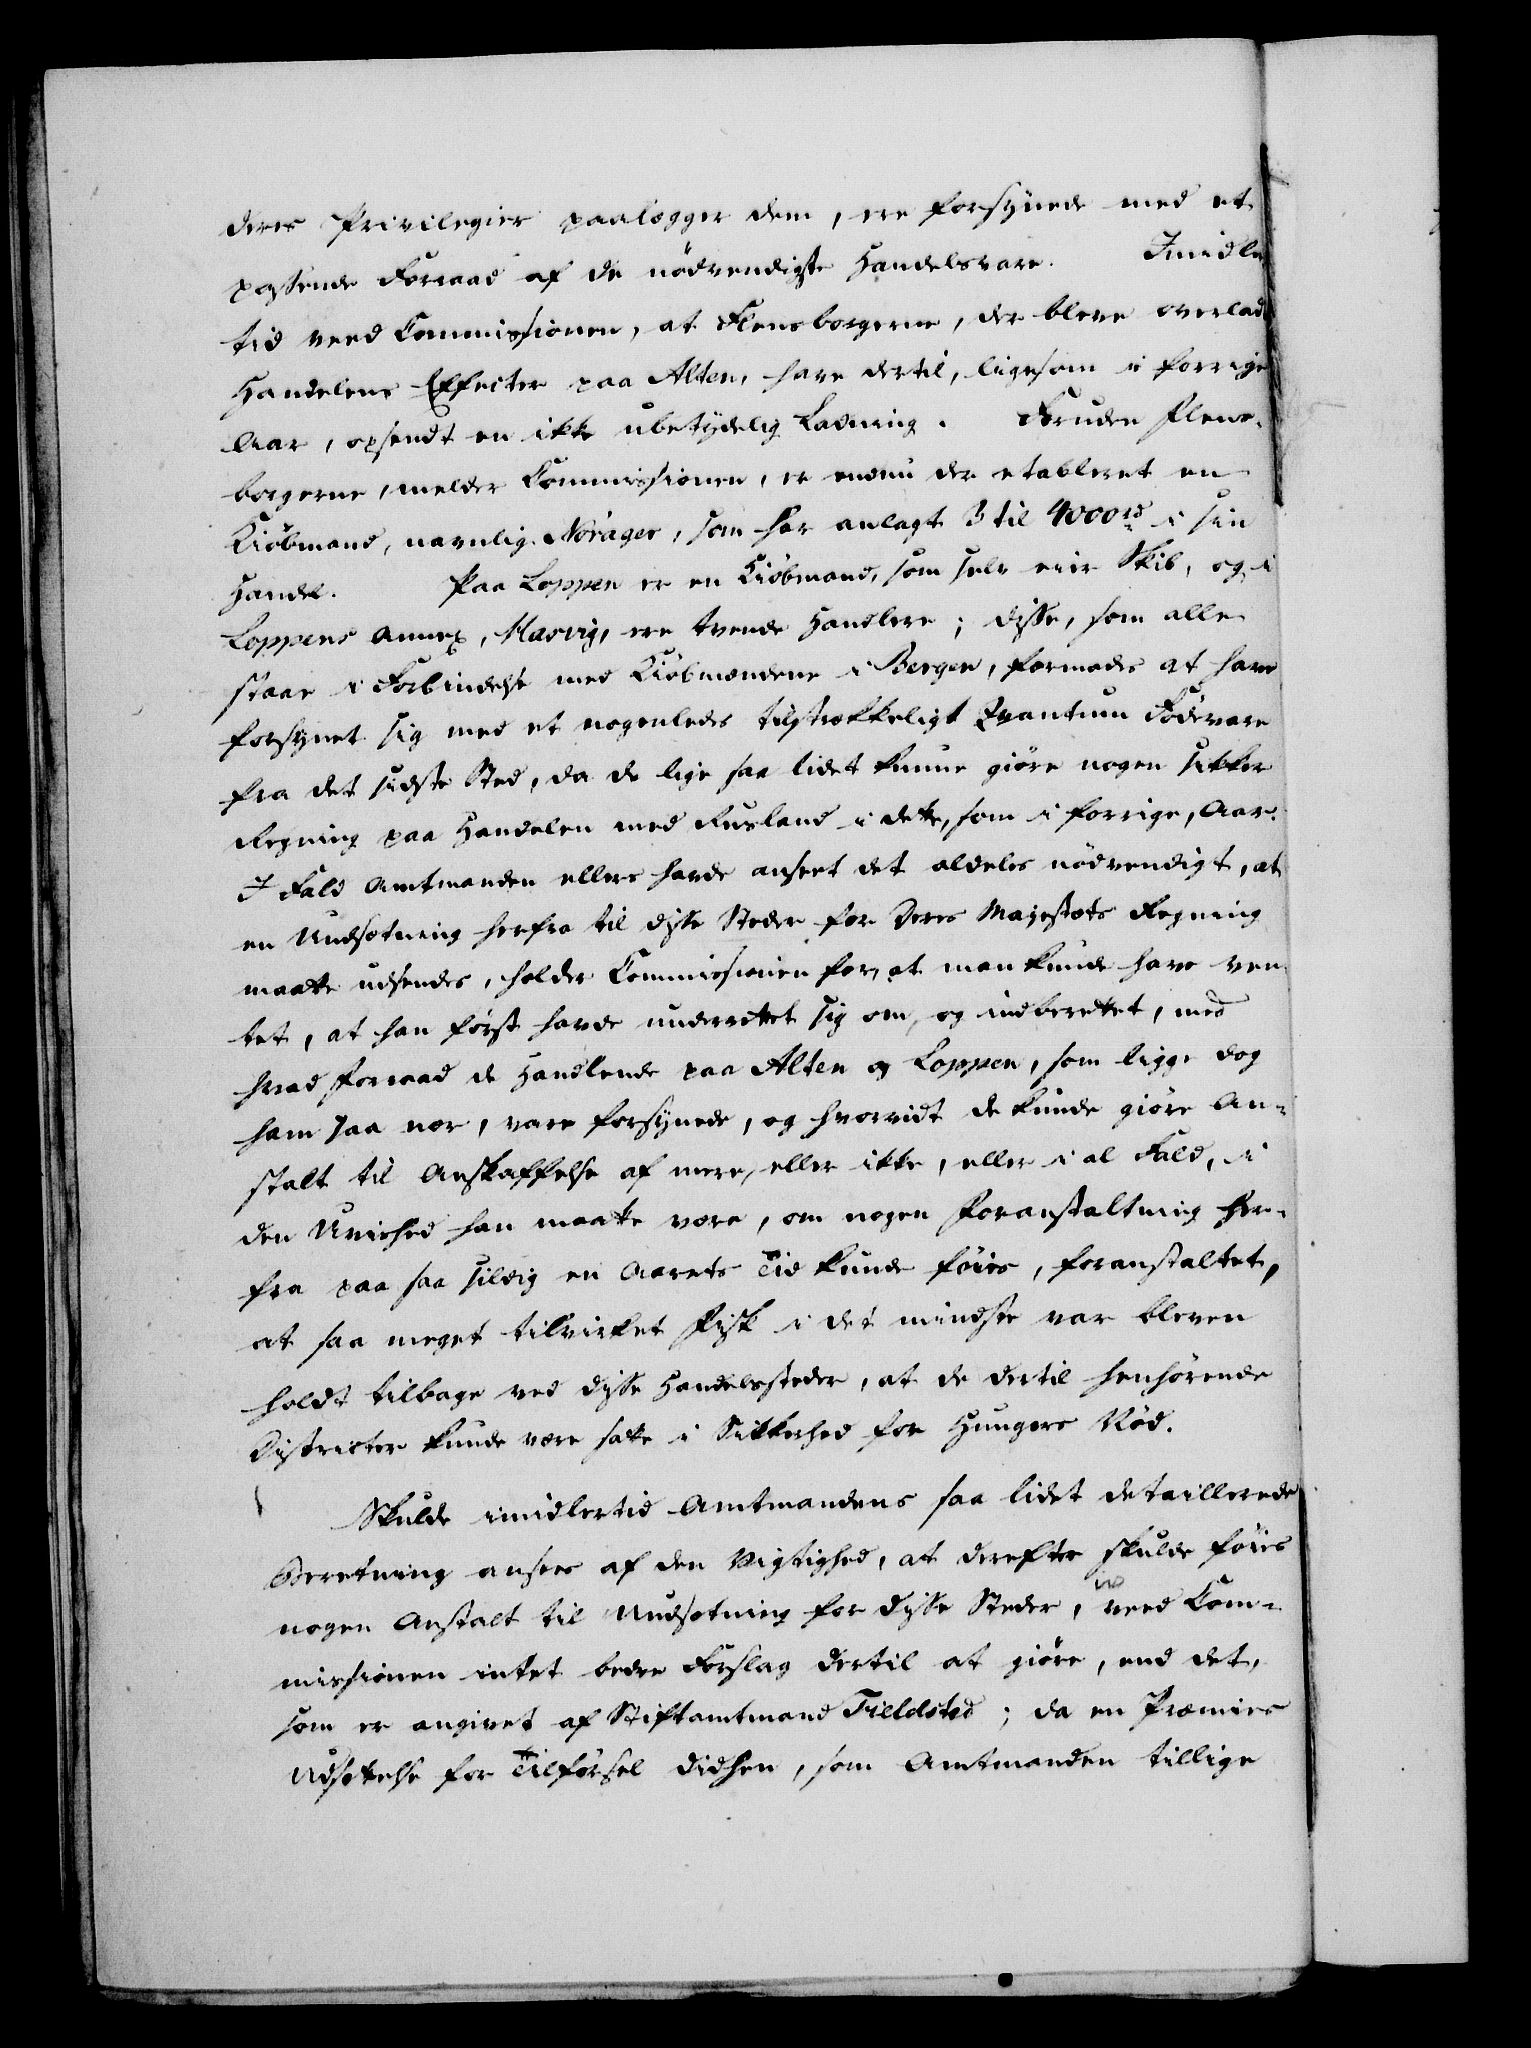 deres Privilegier paalægger dem, ere forsynede med et
passende Forraad af de nödvendigste Handelsvare. Imidler
tid veed Commissionen, at Flensborgerne, der bleve overladt
Handelens Effecter paa Alten, have dertil, ligesom i forrige
Aar, opsendt en ikke ubetydelig Ladning. Foruden Flens-
borgerne, melder Commissionen, er endnu der etableret en
Kiöbmand, navnlig Norager, som har anlagt 3 til 4000 rd i sin
Handel. Paa Loppen er en Kiöbmand, som selv eier Skib, og i
Loppens Annex, Masvig, ere tvende Handlere; disse, som alle
staae i Forbindelse med Kiöbmændene i Bergen, formodes at have
forsynet sig med et nogenledes tilstrækkeligt Qvantum Födevare
fra det sidste Sted, da de lige saa lidet kunne giöre nogen sikker
Regning paa Handelen med Rusland i dette, som i forrige, Aar.
I Fald Amtmanden ellers havde anseet det aldeles nödvendigt, at
en Undsætning herfra til disse Steder for Deres Majestæts Regning
maatte udsendes, holder Commissionen for, at man kunde have ven-
tet, at han först havde underrettet sig om, og indberettet, med
hvad Forraad de Handlende paa Alten og Loppen, som ligge dog
ham saa nær, vare forsynede, og hvorvidt de kunde giöre An-
stalt til Anskaffelse af mere, eller ikke, eller i al Fald, i
den Uvished han maatte være, om nogen Foranstaltning her-
fra paa saa sildig en Aarets Tid kunde föies, foranstaltet,
at saa meget tilvirket Fisk i det mindste var bleven
holdt tilbage ved disse Handelssteder, at de dertil henhörende
Districter kunde være satte i Sikkerhed for Hungers Nöd.
Skulde imidlertid Amtmandens saa lidet detaillerede
Beretning ansees af den Vigtighed, at derefter skulde föies
nogen Anstalt til Undsætning for disse Steder, veed Com-
missionen intet bedre Forslag dertil at giöre, end det,
som er angivet af Stiftamtmand Fieldsted; da en Præmies
Udsættelse for Tilförsel didhen, som Amtmanden tillige